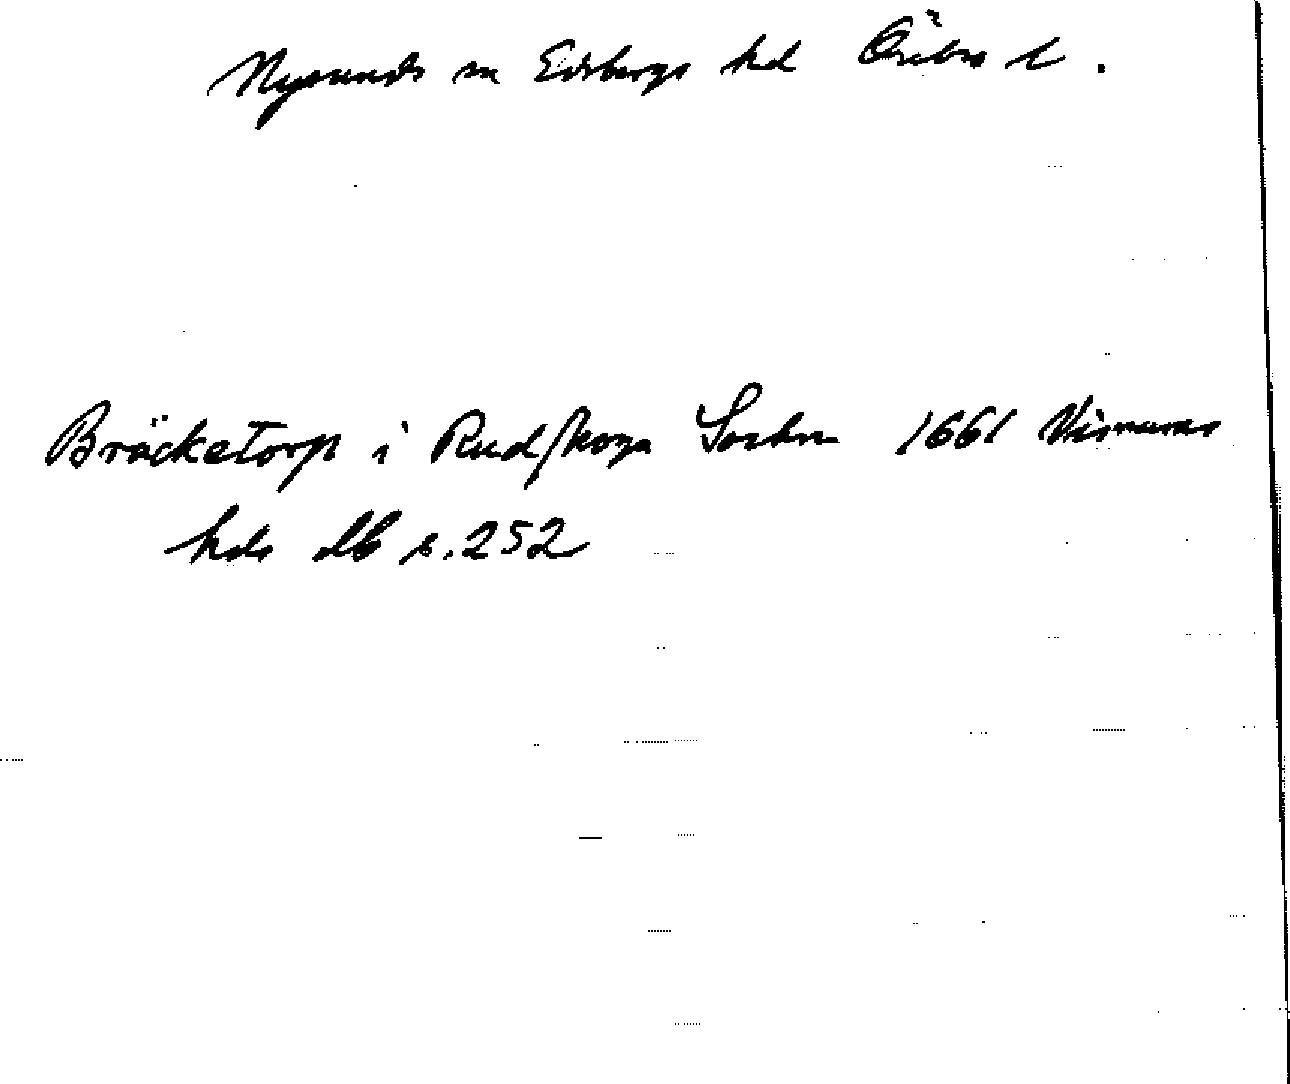 Nysunds sn Edsbergs hd Örebro l.
Bräcketorp i Rudskoga Sochn 1661 Visnums
hds db s.252